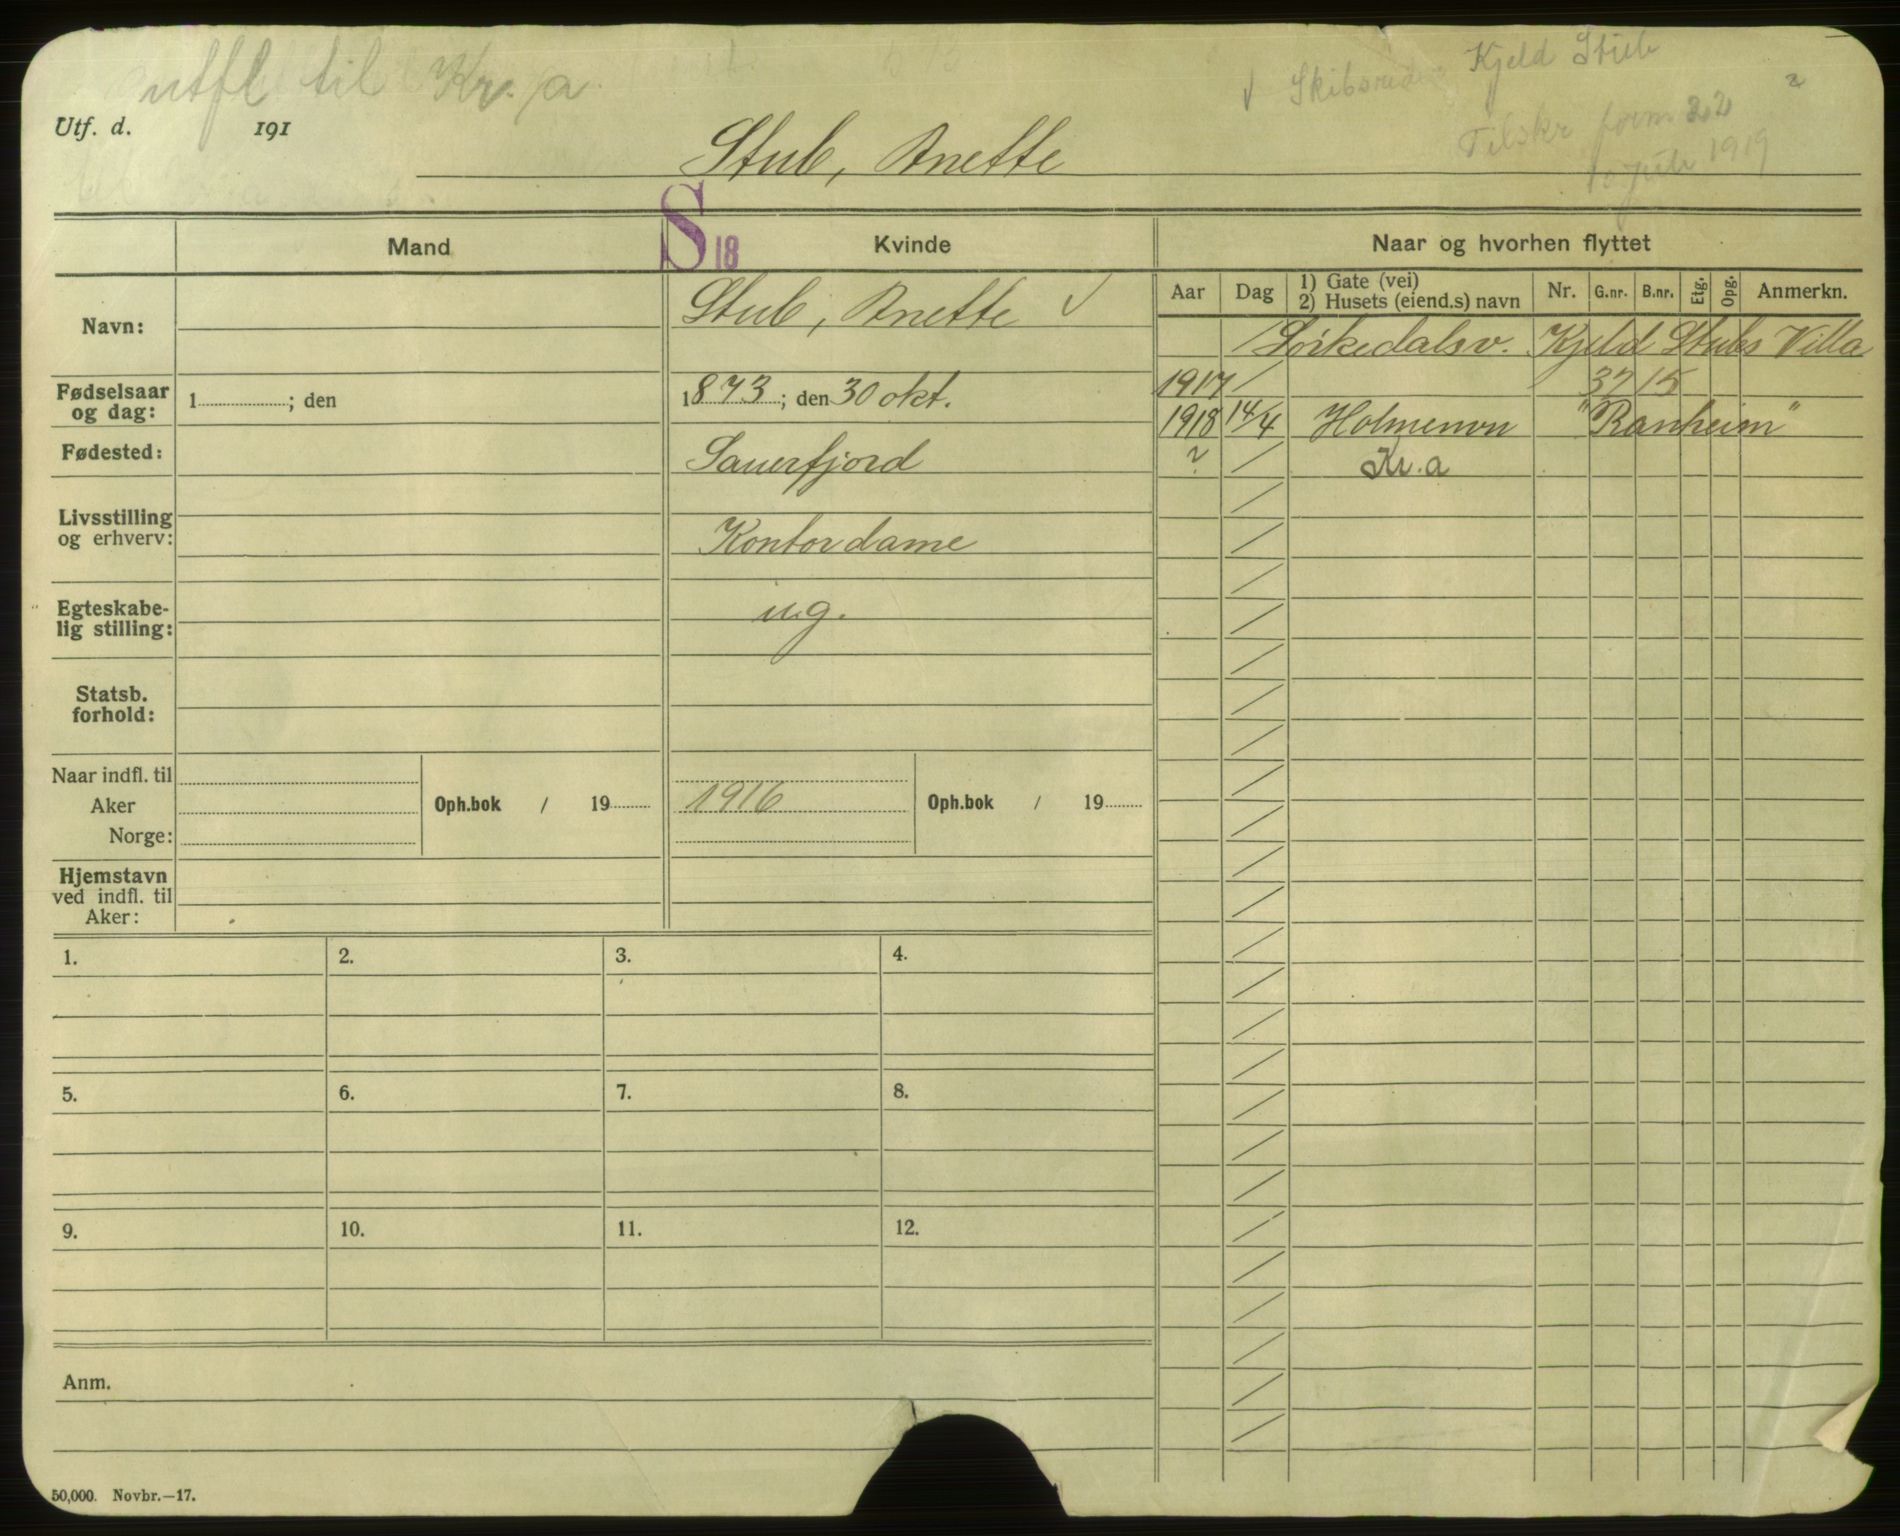 utfl til Kr. a.
Kjeld Stub
Tilskr form 22
10 Juli 1919
Utf. d. 191
Stub, Anette
S 18
Mand Kvinde Naar og hvorhen flyttet
Aar Dag 1) Gate (vei) 2) Husets (eiend.s) navn Nr. G.nr. B.nr. Etg. Opg. Anmerkn.
Navn: Stub, Anette ✓
Sörkedalsv. Kjeld Stubs Villa
1917 / 32 15
1918 14/4 Holmenvn "Ranheim"
? / Kr. a
Fødselsaar og dag: 1 ; den 1873; den 30 okt.
Fødested: Sauerfjord
Livsstilling og erhverv: Kontordame
Egteskabe-
lig stilling: ug.
Statsb. forhold:
Naar indfl. til
Aker Oph.bok / 19 1916 Oph.bok / 19
Norge:
Hjemstavn
ved indfl. til
Aker:
1. 2. 3. 4.
5. 6. 7. 8.
9. 10. 11. 12.
Anm.
50,000. Novbr.—17.